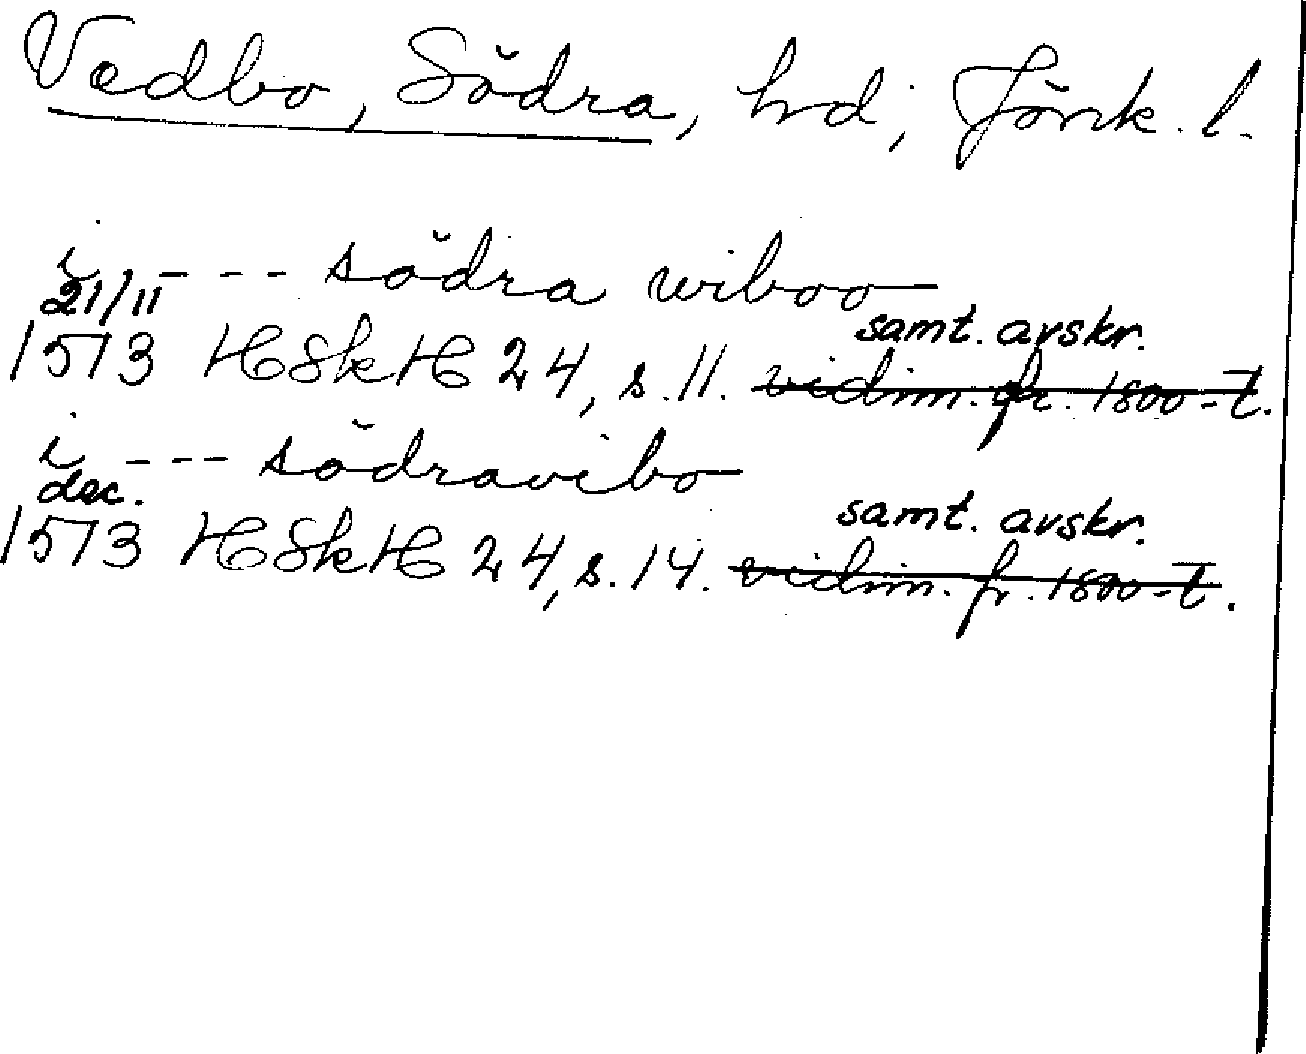 Vedbo, Södra, hd; Jönk. l.
i - - - södra wiboo
21/11
samt. avskr.
1513 HSkH 24, s. 11. vidim. fr. 1800-t.
i - - - södravibo
dec.
samt. avskr.
1513 HSkH 24, s. 14. vidim. fr. 1800-t.